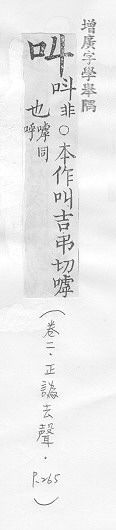 增廣字學舉隅
叫
呌非○本作叫吉弔切嘑
也 嘑同
呼
(卷二·正譌去聲·
P.265)